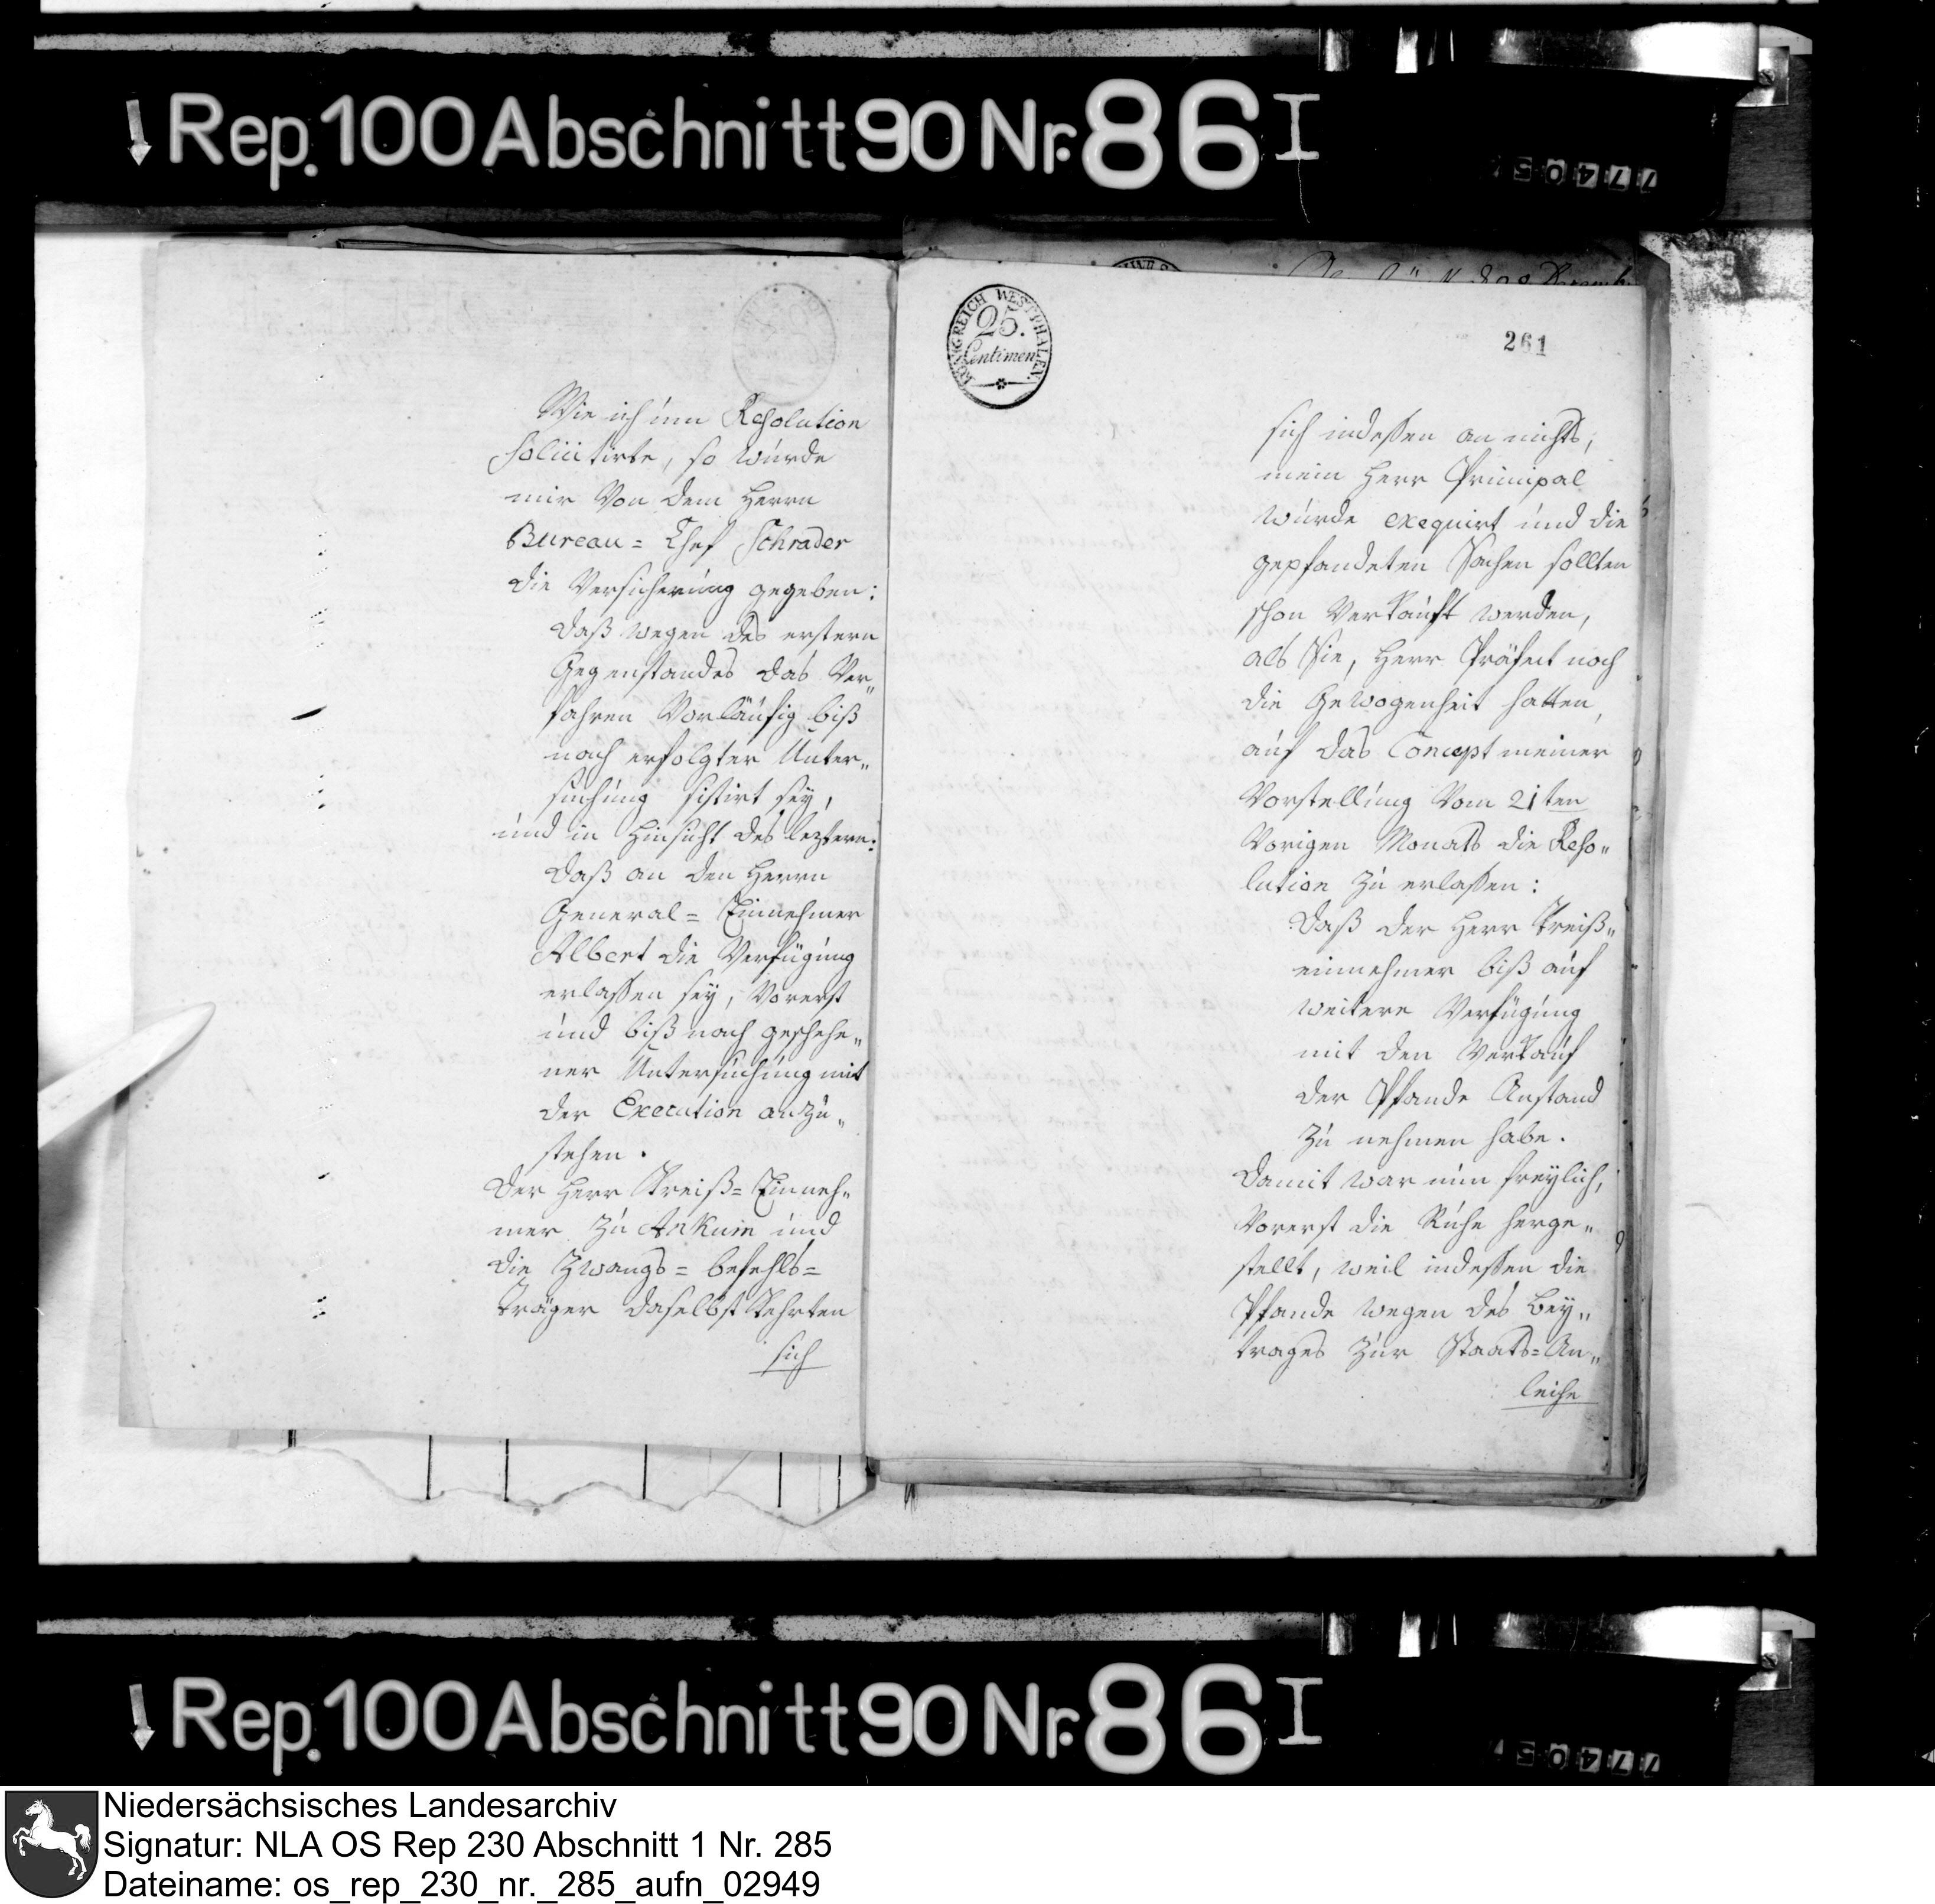 Rep. 100 Abschnitt 90 Nr. 86 I
Wie ich um Resolution
sollicitirte, so wurde
mir von dem Herrn
Bureau= Chef Schrader
die Versicherung gegeben:
daß wegen des erstern
Gegenstandes das Ver„
fahren vorläufig biß
nach erfolgter Unter„
suchung sistirt sey,
und in Hinsicht des leztern:
daß an den Herrn
General= Einnehmer
Albert die Verfügung
erlaßen sey, vorerst
und biß nach geschehe„
ner Untersuchung mit
der Execution anzu„
stehen.
Der Herr Kreiß= Einneh„
mer zu Ankum und
die Zwangs= befehls=
träger daselbst kehrten
sich
KÖNIGREICH WESTPHALEN.
25.
Centimen
261
sich indeßen an nichts,
mein Herr Principal
wurde exequirt und die
gepfandeten Sachen sollten
schon verkauft werden,
als Sie, Herr Präfect noch
die Gewogenheit hatten,
auf das Concept meiner
Vorstellung vom 21ten
vorigen Monats die Reso„
lution zu erlaßen:
daß der Herr Kreiß„
einnehmer biß auf
weitere Verfügung
mit den Verkauf
der Pfande Anstand
zu nehmen habe.
Damit war nun freylich,
vorerst die Ruhe herge„
stellt, weil indeßen die
Pfande wegen des Bey„
trages zur Staats=An„
leihe
Rep. 100 Abschnitt 90 Nr. 86 I
Niedersächsisches Landesarchiv
Signatur: NLA OS Rep 230 Abschnitt 1 Nr. 285
Dateiname: os_rep_230_nr._285_aufn_02949